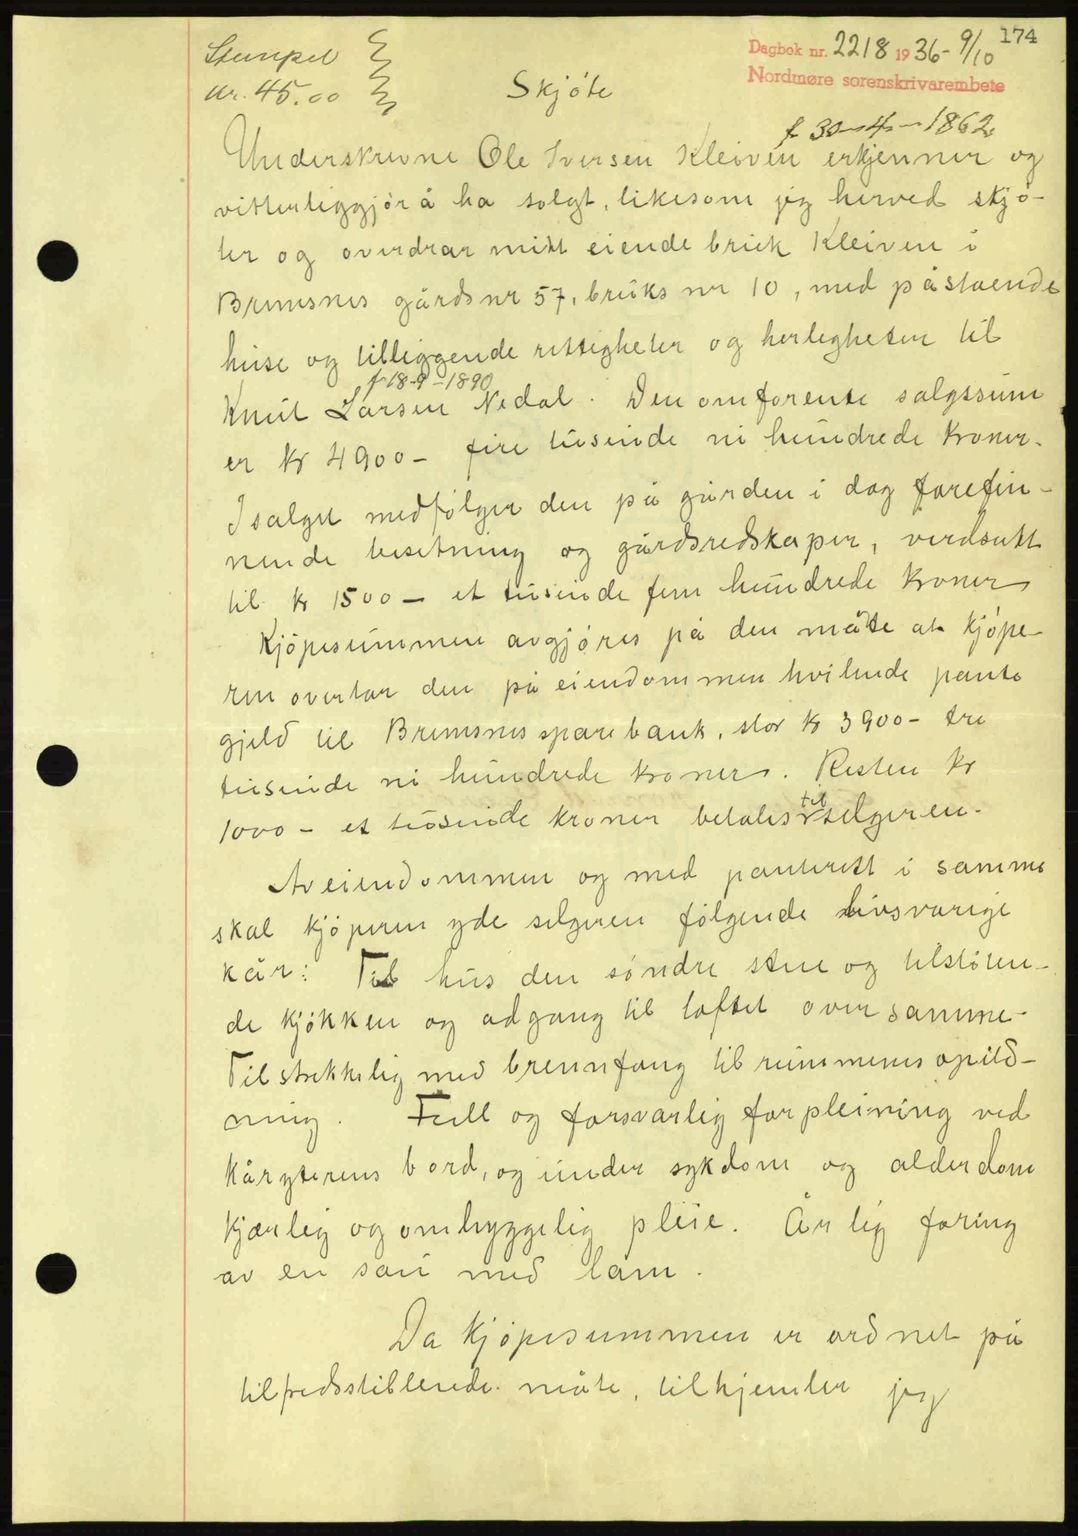 Stempel
kr. 45.00
Dagbok nr. 2218 1936 - 9/10
174
Nordmøre sorenskrivarembete
Skjøte
f 30-4-1862
Underskrevne Ole Iversen Kleiven erkjenner og
vitterliggjør å ha solgt, likesom jeg herved skjø-
ter og overdrar mitt eiende bruk Kleiven i
Bremsnes gårdsnr 57, bruks nr 10, med påstående
huse og tilliggende rettigheter og herligheter til
f 18-9-1890
Knut Larsen Nedal. Den omforente salgssum
er kr 4900- fire tusinde ni hundrede kroner.
I salget medfølger den på gården i dag forefin-
nende besetning og gårdsredskaper, verdsatt
til kr 1500- et tusinde fem hundrede kroner
Kjøpesummen avgjøres på den måte at kjøpe-
ren overtar den på eiendommen hvilende pante
gjeld til Bremsnes sparebank, stor kr 3900- tre
tusinde ni hundrede kroner. Resten kr
1000- et tusinde kroner betales til selgeren.
Av eiendommen og med panterett i samme
skal kjøperen yde selgeren følgende livsvarige
kår: Til hus den søndre stue og tilstøten-
de kjøkken og adgang til loftet over samme.
Tilstrekkelig med brennfang til rummenes opild-
ning. Full og forsvarlig forpleining ved
kåryterens bord, og under sykdom og alderdom
kjærlig og omhyggelig pleie. Årlig foring
av en sau med lam.
Da kjøpesummen er ordnet på
tilfredsstillende måte, tilhjemler jeg